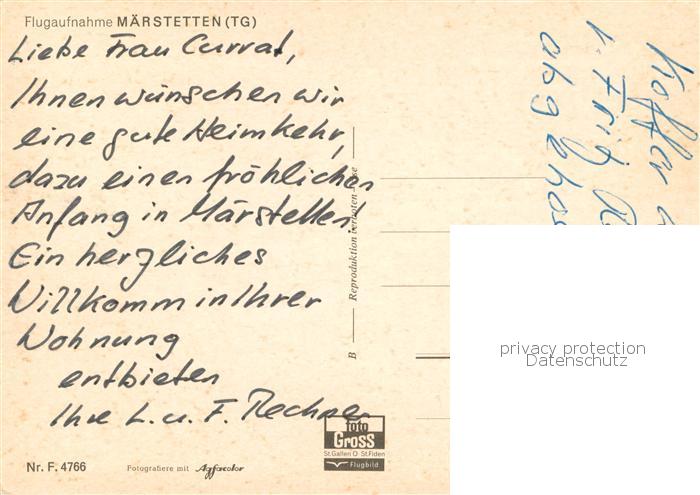 Flugaufnahme MÄRSTETTEN (TG)
Liebe Frau Currat,
Ihnen wünschen wir
eine gute Heimkehr,
dazu einen fröhlichen
Anfang in Märstetten!
Ein herzliches
Willkomm in Ihrer
Wohnung
entbieten
Ihre L. u. F. Rechner
Nr. F. 4766
Fotografiere mit Agfacolor
B
Reproduktion verboten
foto
Gross
St.Gallen O St.Fiden
Flugbild
Koffer
v. Fritz
abgeho
privacy protection
Datenschutz